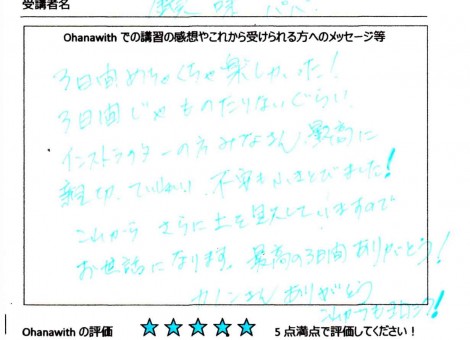 受講者名
Ohanawith での講習の感想やこれから受けられる方へのメッセージ等
3日間めちゃくちゃ楽しかった!
3日間じゃものたりないぐらい
インストラクターの方みなさん、最高に
親切、ていねい、不安もふきとびました!
これから さらに上を目
していますので
お世話になります。最高の3日間ありがとう!
カノンさん ありがとう
これからもヨロシク!
Ohanawith の評価 ☆☆☆☆☆ 5 点満点で評価してください!